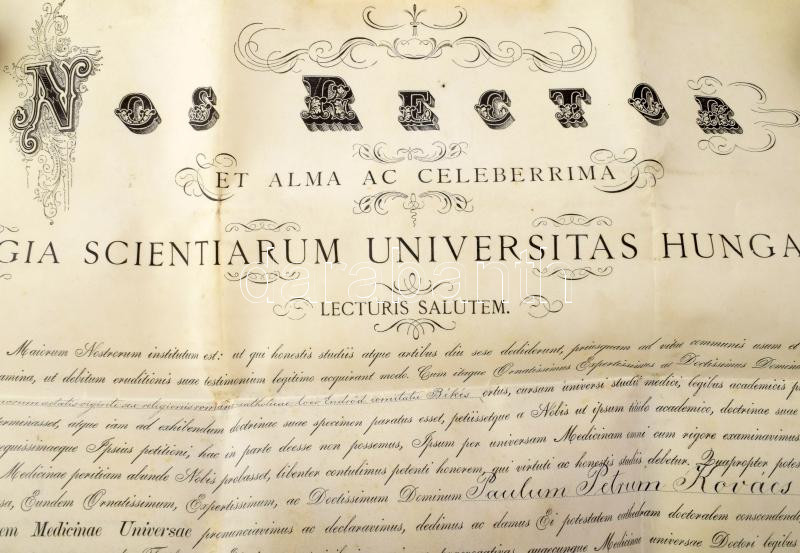 NOS RECTOR
ET ALMA AC CELEBERRIMA
GIA SCIENTIARUM UNIVERSITAS HUNGA
darabanth
LECTURIS SALUTEM.
Maiorum Nostrorum institutum est: ut qui honestis studiis atque artibus diu sese dediderunt, priusquam ad vitae communis usum et
amina, ut debitum eruditionis suae testimonium legitimo acquirant modo. Cum itaque Ornatissimus Expertissimus ac Doctissimus Domin
ortus, cursum universi studii medici, legibus academicis p
ermenasset, atque iam ad exhibendum doctrinae suae specimen paratus esset, petiissetque a Nobis ut ipsum titulo academico, doctrinae suae
equissimaeque Ipsius petitioni, hac in parte deesse non possemus, Ipsum per universam Medicinam omni cum rigore examinavimus
Medicinae peritiam abunde Nobis probasset, libenter contulimus petenti honorem, qui virtuti ac honestis studiis debetur. Quapropter potes
sa, Eundem Ornatissimum, Expertissimum, ac Doctissimum Dominum Paulum Petrum Kovács
em Medicinae Universae pronunciavimus ac declaravimus, dedimus ac damus Ei potestatem cathedram doctoralem conscendend
quascunque Medicinae universae Doctori legibus